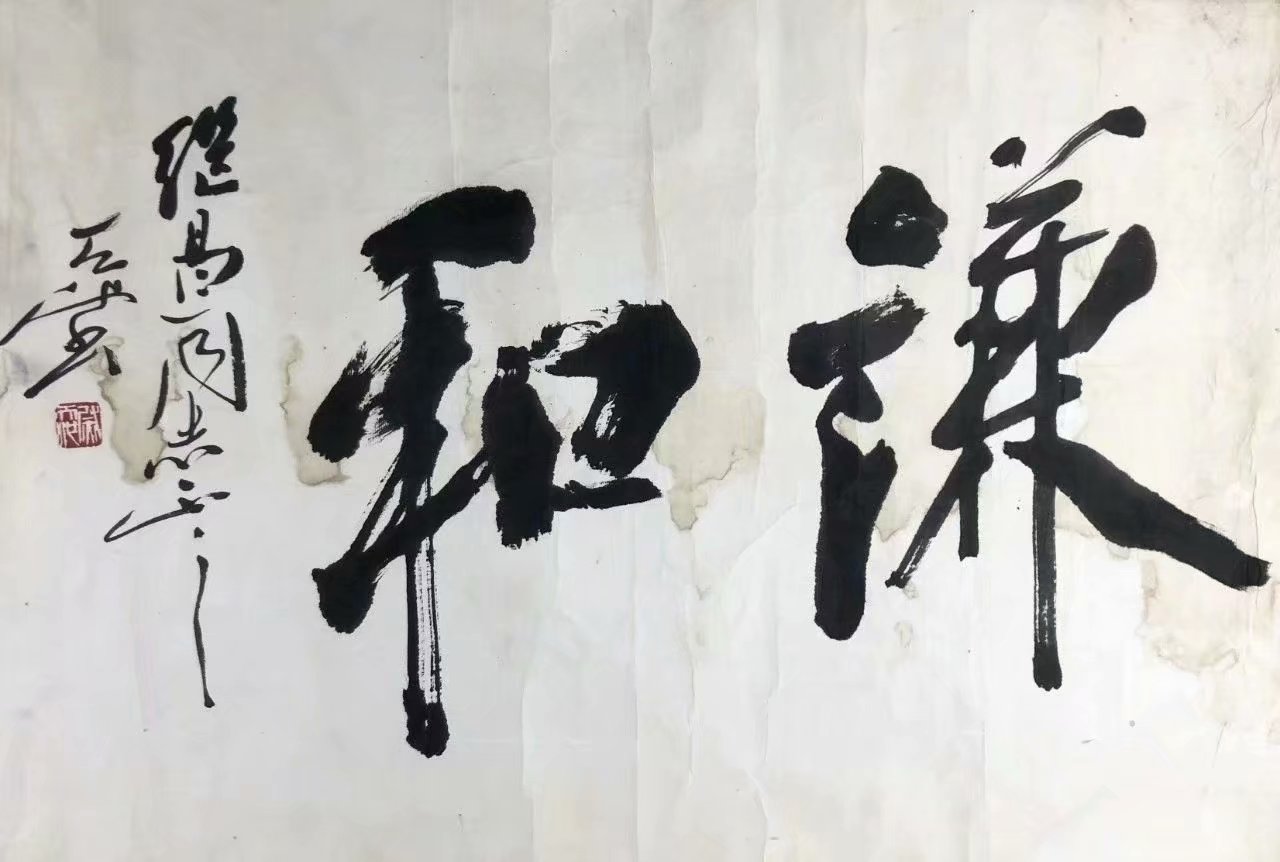 謙和
继昌同志正之